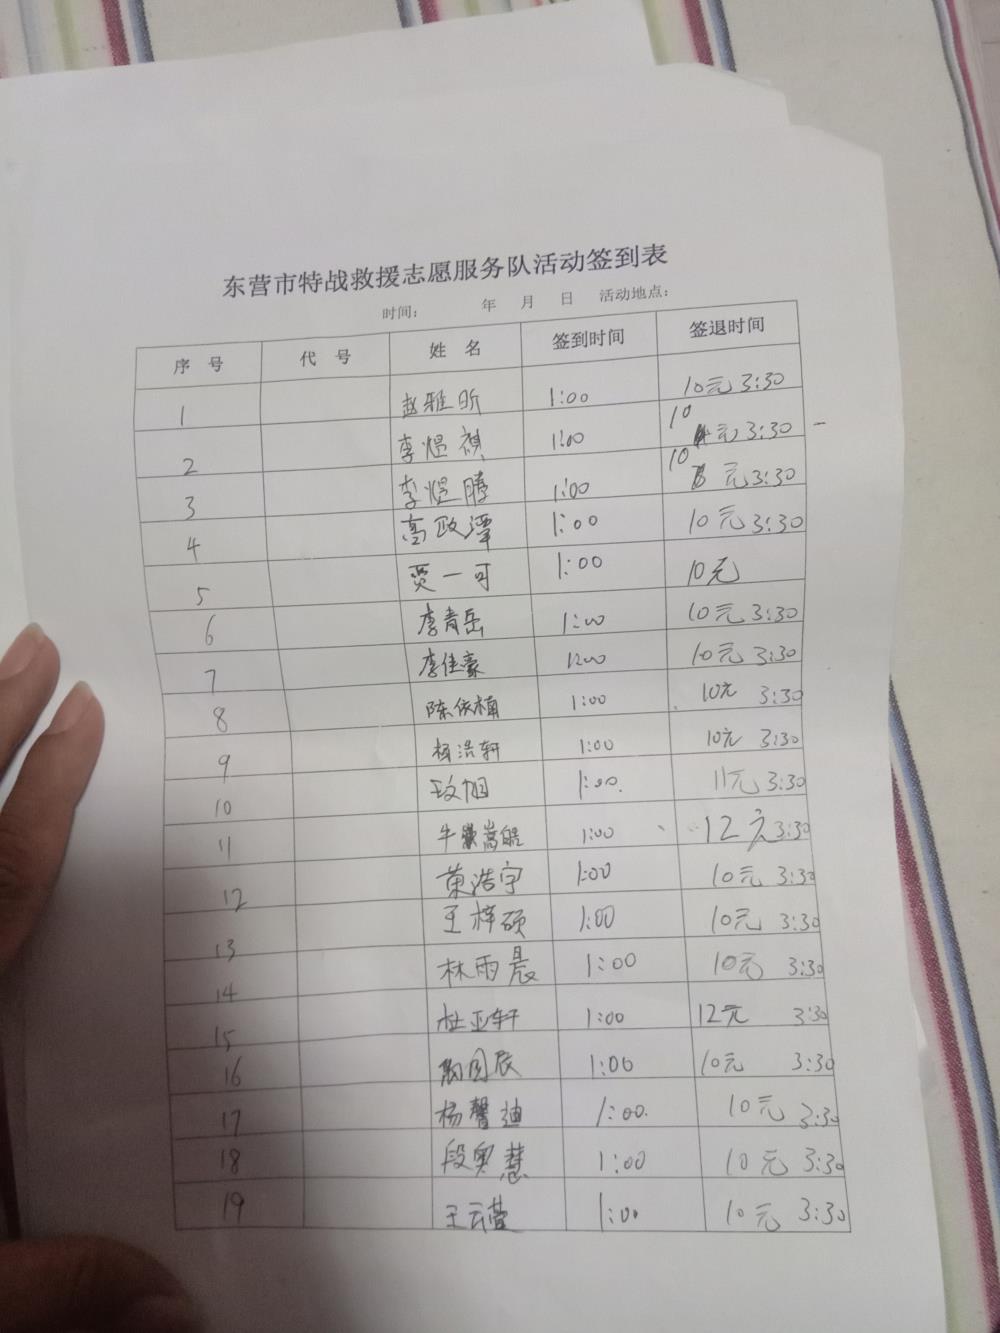 东营市特战救援志愿服务队活动签到表
时间: 年 月 日 活动地点:
序 号 代 号 姓 名 签到时间 签退时间
1 赵雅昕 1:00 10元 3:30
2 李煜祺 1:00 10元 3:30
3 李煜腾 1:00 10元 3:30
4 高政潭 1:00 10元 3:30
5 贾一可 1:00 10元
6 李青岳 1:00 10元 3:30
7 李佳豪 1:00 10元 3:30
8 陈依楠 1:00 10元 3:30
9 杨浩轩 1:00 10元 3:30
10 1:00 11元 3:30
11 牛嵩皓 1:00 12元 3:30
12 黄浩宇 1:00 10元 3:30
13 王梓硕 1:00 10元 3:30
14 林雨晨 1:00 10元 3:30
15 杜亚轩 1:00 12元 3:30
16 1:00 10元 3:30
17 杨馨迪 1:00 10元 3:30
18 段奥慧 1:00 10元 3:30
19 王云萱 1:00 10元 3:30